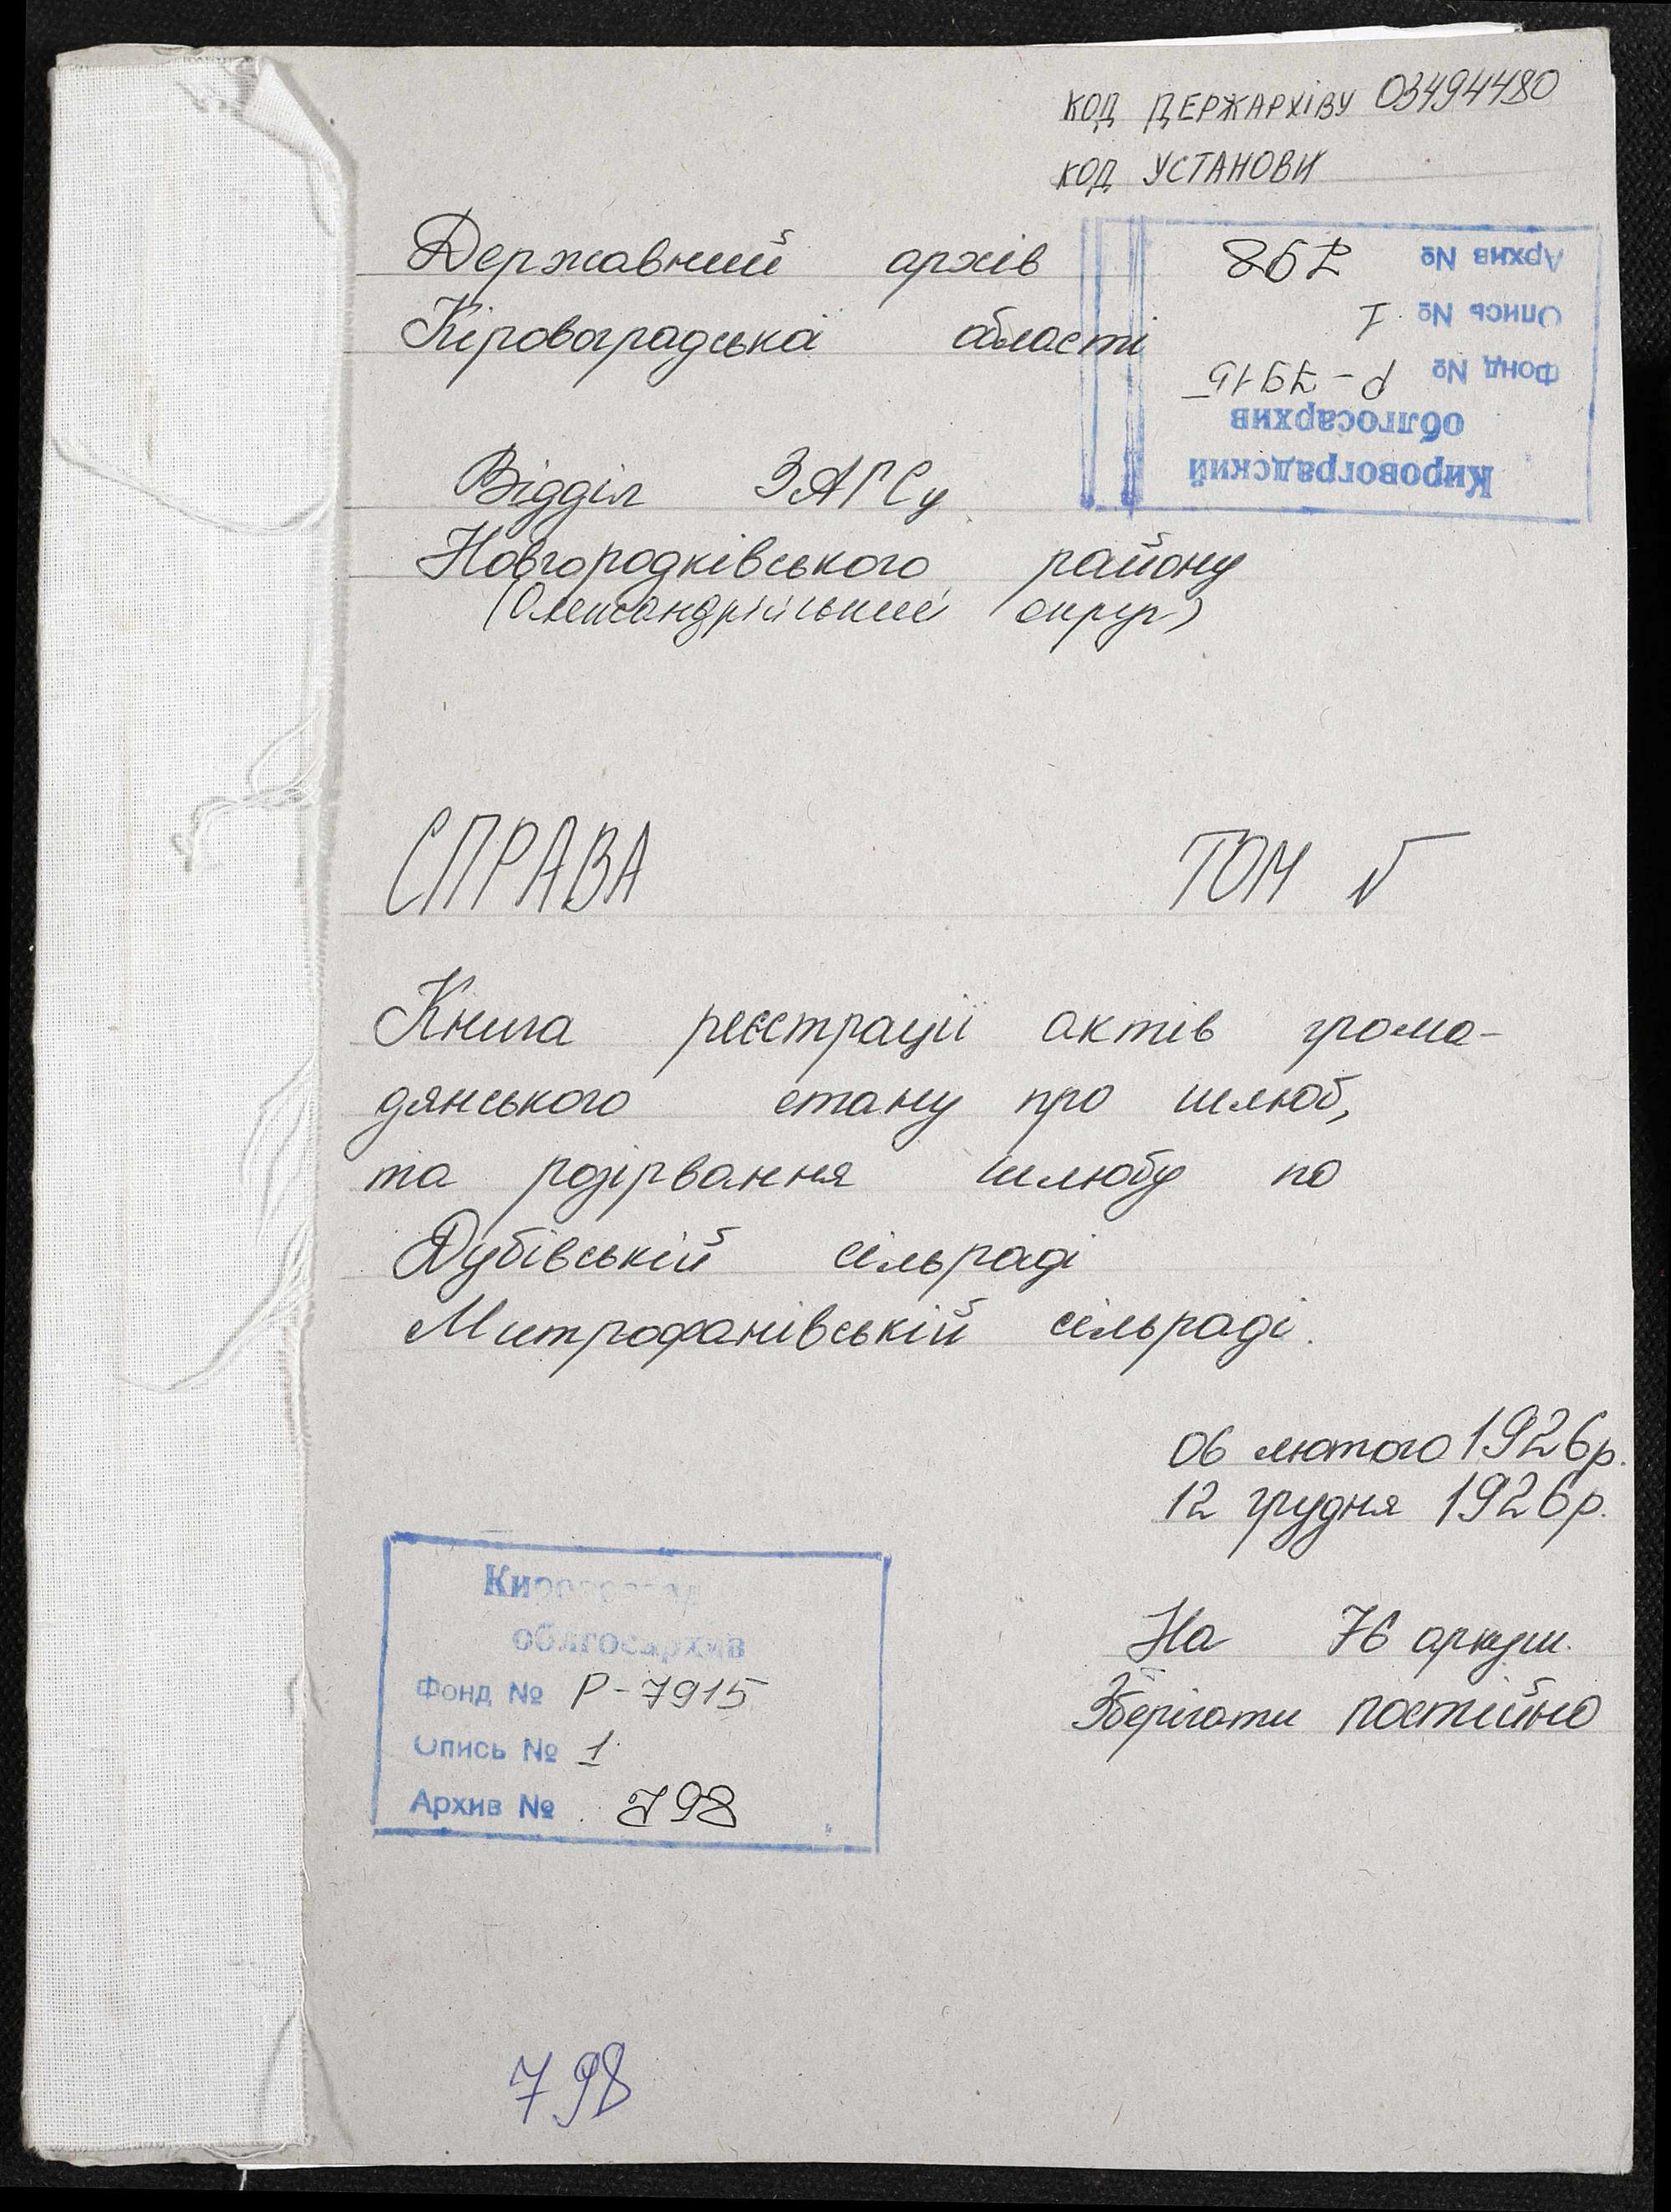 КОД ДЕРЖАРХІВУ 03494480
КОД УСТАНОВИ
Державний архів
Кіровоградська області
Архив № 798
Опись № 1
Фонд № Р-7915
облгосархив
Кировоградский
Відділ ЗАГСу
Новгородківського району
(Олександрійський округ)
СПРАВА ТОМ №
Книга реєстрації актів грома-
дянського стану про шлюб,
та розірвання шлюбу по
Дубівській сільраді
Митрофанівській сільраді.
06 лютого 1926р.
12 грудня 1926р.
На 76 аркуш.
Зберігати постійно
облгосархив
Фонд № Р-7915
Опись № 1
Архив № 798
798